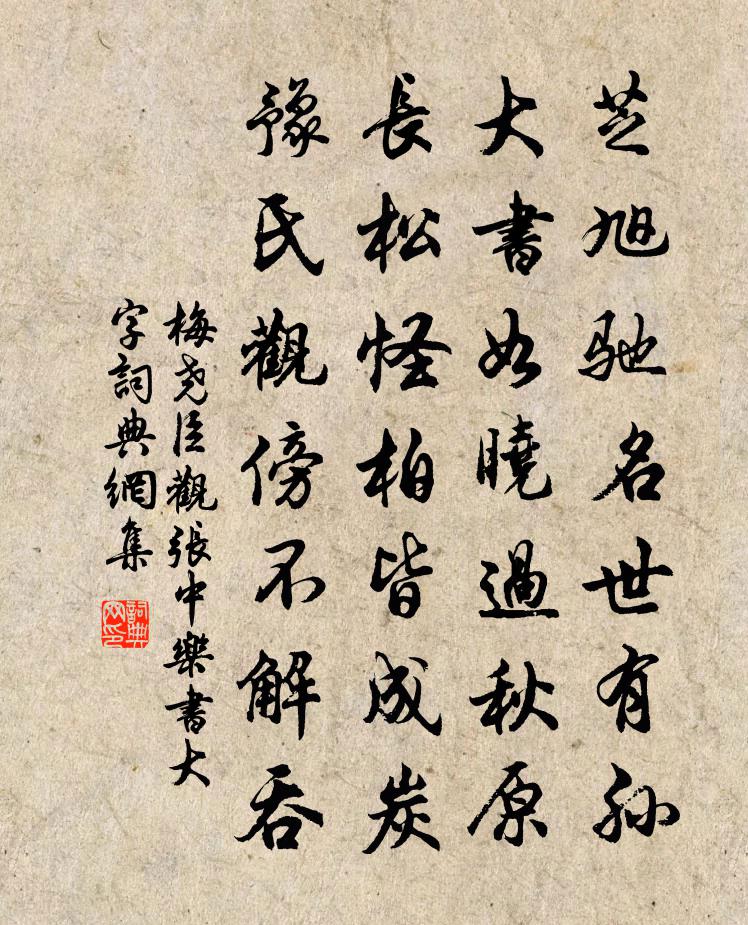 芝旭馳名世有孫
大書如曉過秋原
長松怪柏皆成炭
豫氏觀傍不解吞
梅堯臣觀張中樂書大
字詞典網集
詞典
网印